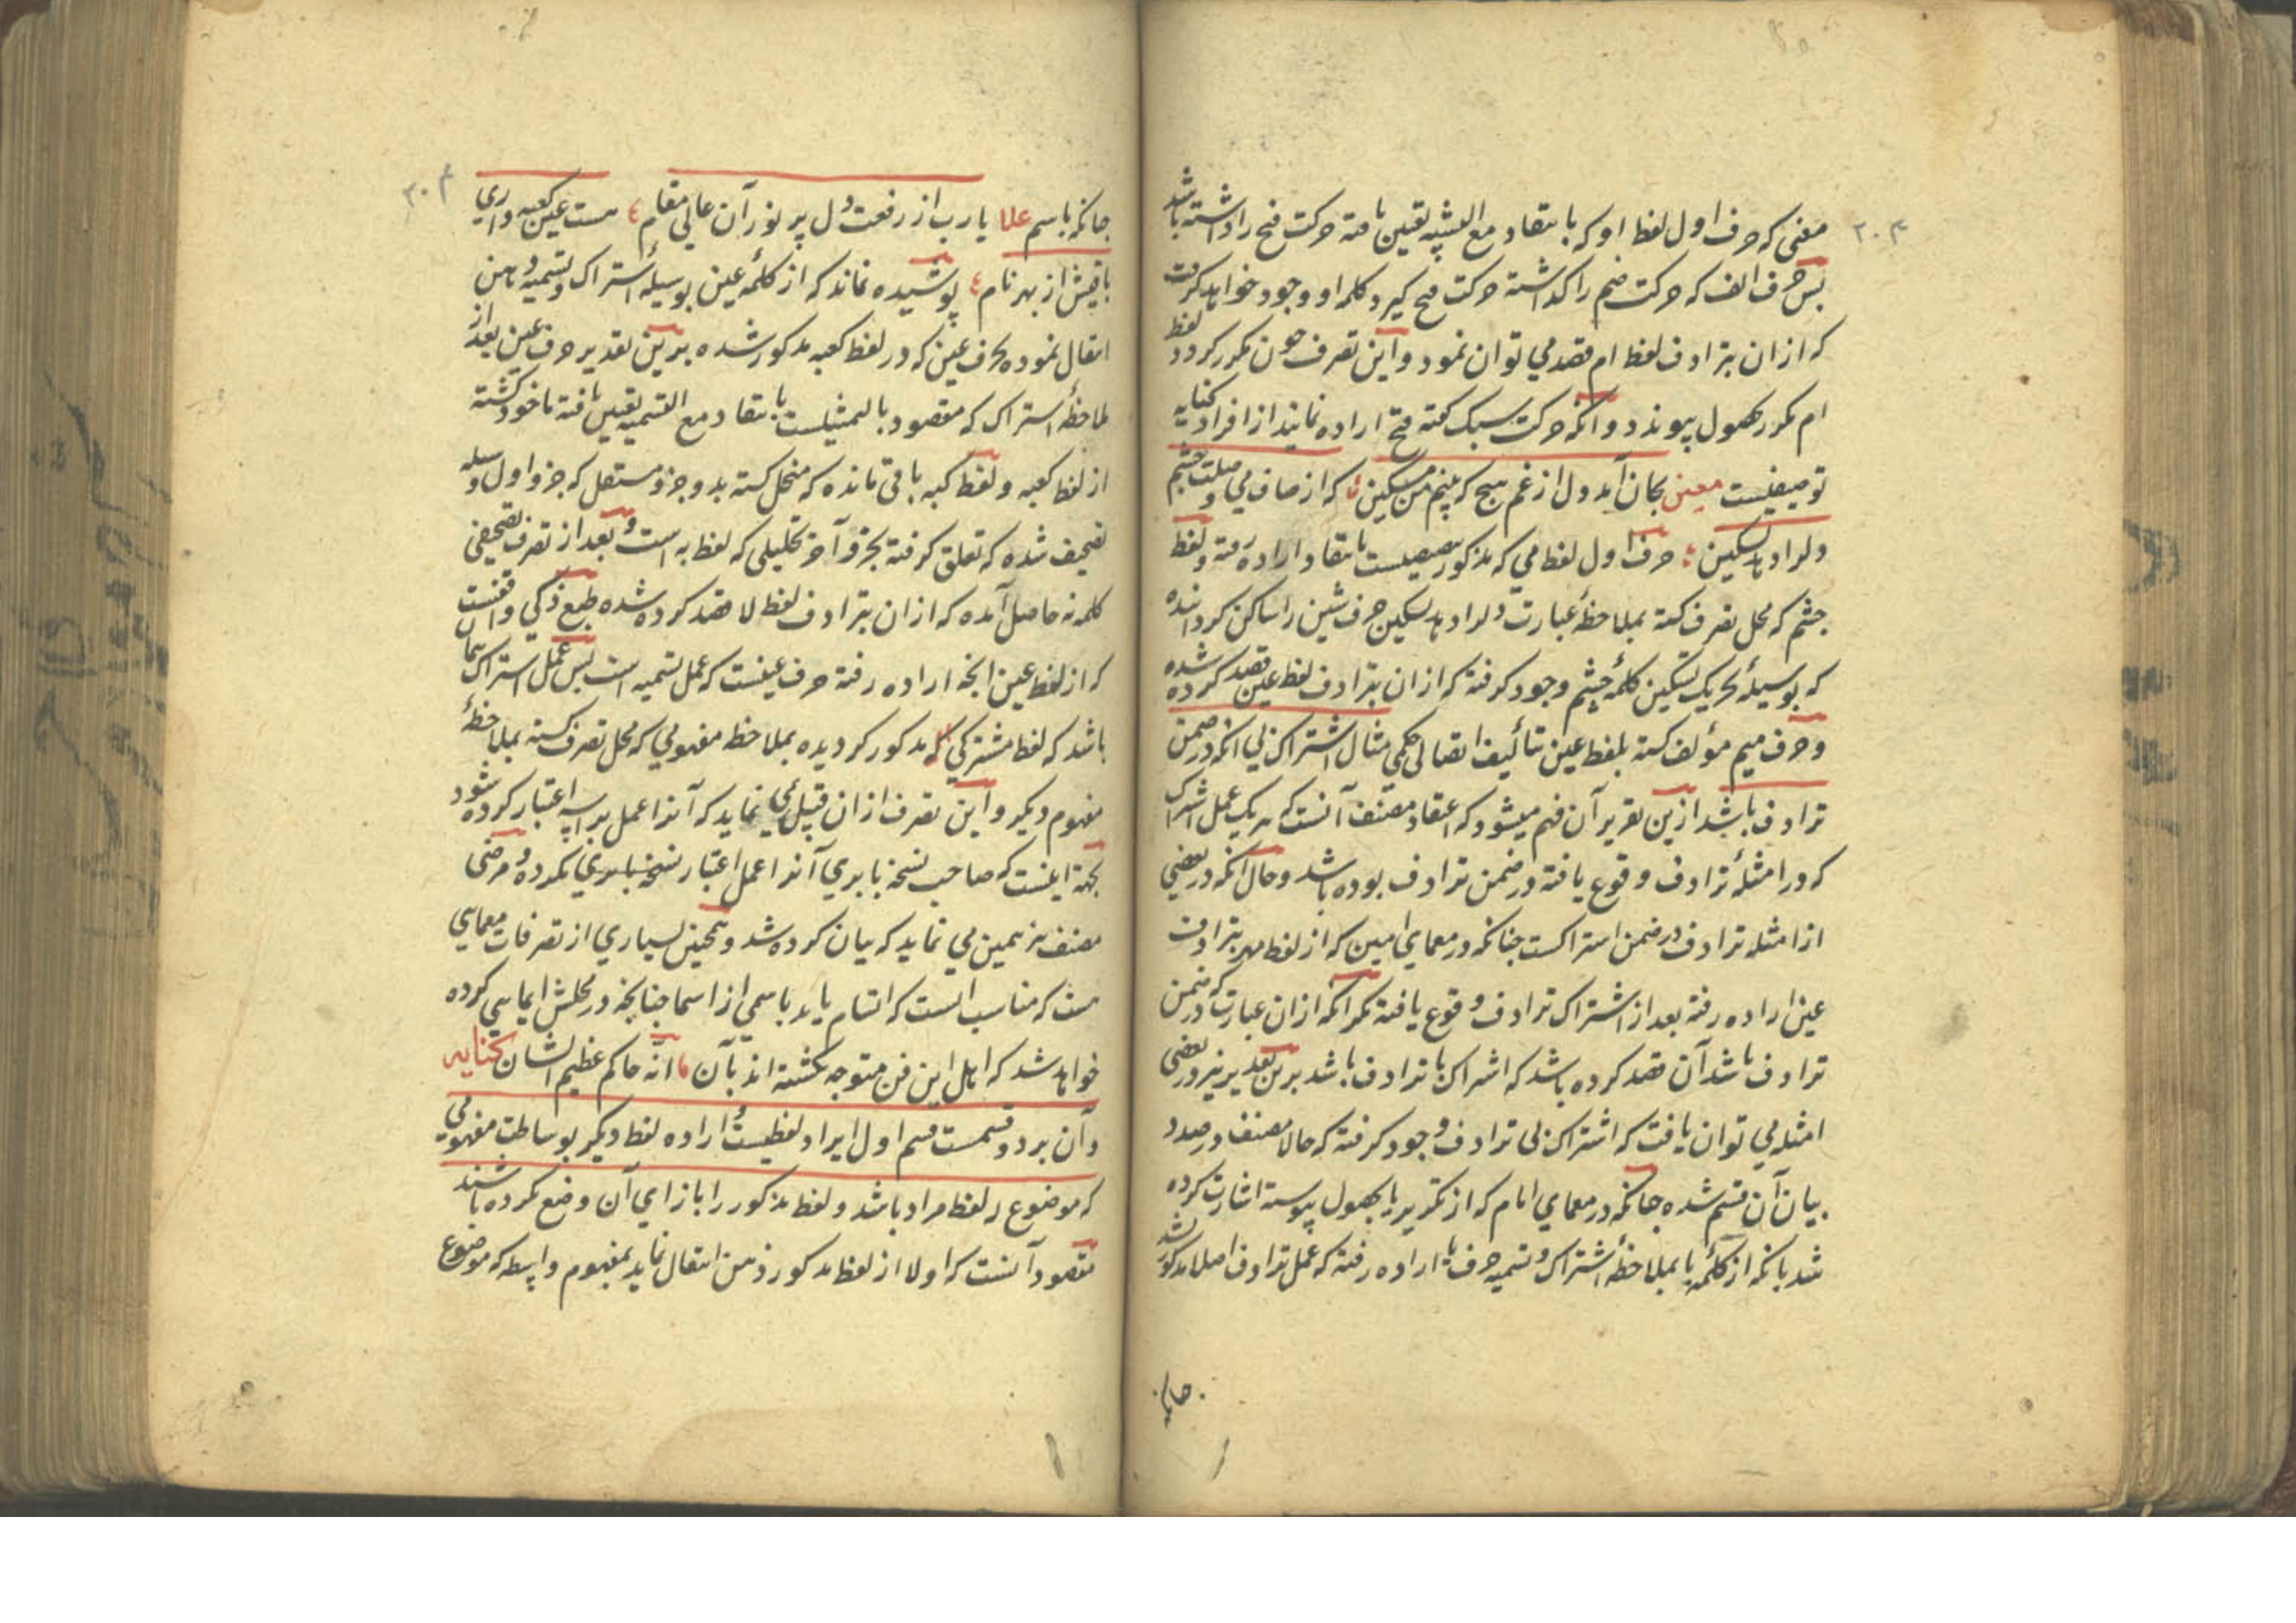 ۲۰۳
معنی که حرف اول لفظ او که بانتقاد مع التشبیه تعین یافته حرکت فتح را داشته باشد
پس حرف الف که حرکت ضم را کذاشته حرکت فتح کیرد کلمه او وجود خواهد کرفت
که ازان بترادف لفظ ام قصد می توان نمود و این تصرف چون مکرر کردد لفظ
ام مکرر بحصول پیوندد و آنکه حرکت سبک کفته فتح اراده نمایند از افراد کنایه
توصیفیست معین بجان آمد دل از غم هیچ که بینم من مسکین که از صاف می وصلت چشم
دلرا دهد تسکین حرف اول لفظ می که مذکور بانتقاد اراده رفته و لفظ
چشم که محل تصرف کشته بملاحظهٔ عبارت دلرا دهد تسکین حرف شین را ساکن کردانیده
که بوسیلهٔ تحریک تسکین کلمهٔ چشم وجود کرفته که ازان بترادف لفظ عین قصد کرده شده
و حرف میم مؤلف کشته بلفظ عین بتألیف اتصالی حکمی مثال اشتراک بی آنکه در ضمن
ترادف باشد ازین تقریر آن فهم میشود که اعتقاد مصنف آنست که هر یک عمل اشتراک
که در امثلهٔ ترادف وقوع یافته در ضمن ترادف بوده باشد و حال آنکه در بعضی
از امثله ترادف در ضمن اشتراکست چنانکه در معمای امین که از لفظ مهر بترادف
عین اراده رفته بعد از اشتراک ترادف وقوع یافته مکر آنکه ازان عبارت که در ضمن
ترادف باشد آن قصد کرده باشد که اشتراک با ترادف باشد برین تقدیر نیز در بعضی
امثله می توان یافت که اشتراک بی ترادف وجود کرفته که حالا مصنف در صدد
بیان آن قسم شده چنانکه در معمای امام که از تکریر یا بحصول پیوسته اشارت کرده
شد بانکه از کلمهٔ یا بملاحظهٔ اشتراک و تسمیه حرف یا اراده رفته که عمل ترادف اصلا مذکور نشد
چنانکه
۲۰۴
چنانکه باسم علا یا رب از رفعت دل پر نور آن عالی مقام هست عین کعبه و داری
باقیش از بهر نام پوشیده نماند که از کلمهٔ عین بوسیلهٔ اشتراک و تسمیه ذهن
انتقال نموده بحرف عین که در لفظ کعبه مذکور شده برین تقدیر حرف عین بعد از
ملاحظهٔ اشتراک که مقصود بالتمثیلست بانتقاد مع التسمیه تعین یافته ماخود کشته
از لفظ کعبه و لفظ کبه باقی مانده که منحل کشته بدو جزو مستقل که جزو اول وسیله
تصحیف شده که تعلق کرفته بجزو آخر تحلیلی که لفظ به است و بعد از تصرف تصحیفی
کلمه نه حاصل آمده که ازان بترادف لفظ لا قصد کرده شده طبع ذکی واقفست
که از لفظ عین آنچه اراده رفته حرف عینست که عمل تسمیه است پس عمل اشتراک
باشد که لفظ مشترکی که مذکور کردیده بملاحظه مفهومی که محل تصرف کشته بملاحظهٔ
مفهوم دیکر و این تصرف ازان قبیل می نماید که آنرا عمل براسه اعتبار کرده شود
بجهة اینست که صاحب نسخهٔ بابری آنرا عمل اعتبار نکرده و مرضی
مصنف نیز همین می نماید که بیان کرده شد و همچنین بسیاری از تصرفات معمایی
هست که مناسب انست که اتسام یابد باسمی از اسما چنانچه در محلش ایمایی کرده
خواهد شد که اهل این فن متوجه نکشته اند بآن انه حاکم عظیم الشان کنایه
و آن بر دو قسمست قسم اول ایراد لفظیست و اراده لفظ دیکر بوساطت مفهومی
که موضوع له لفظ مراد باشد و لفظ مذکور را بازای آن وضع نکرده باشند
مقصود آنست که اولا از لفظ مذکور ذهن انتقال نماید بمفهوم واسطه که موضوع